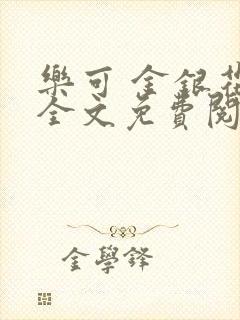 樂可 金銀花
全文免費閱
金學鋒